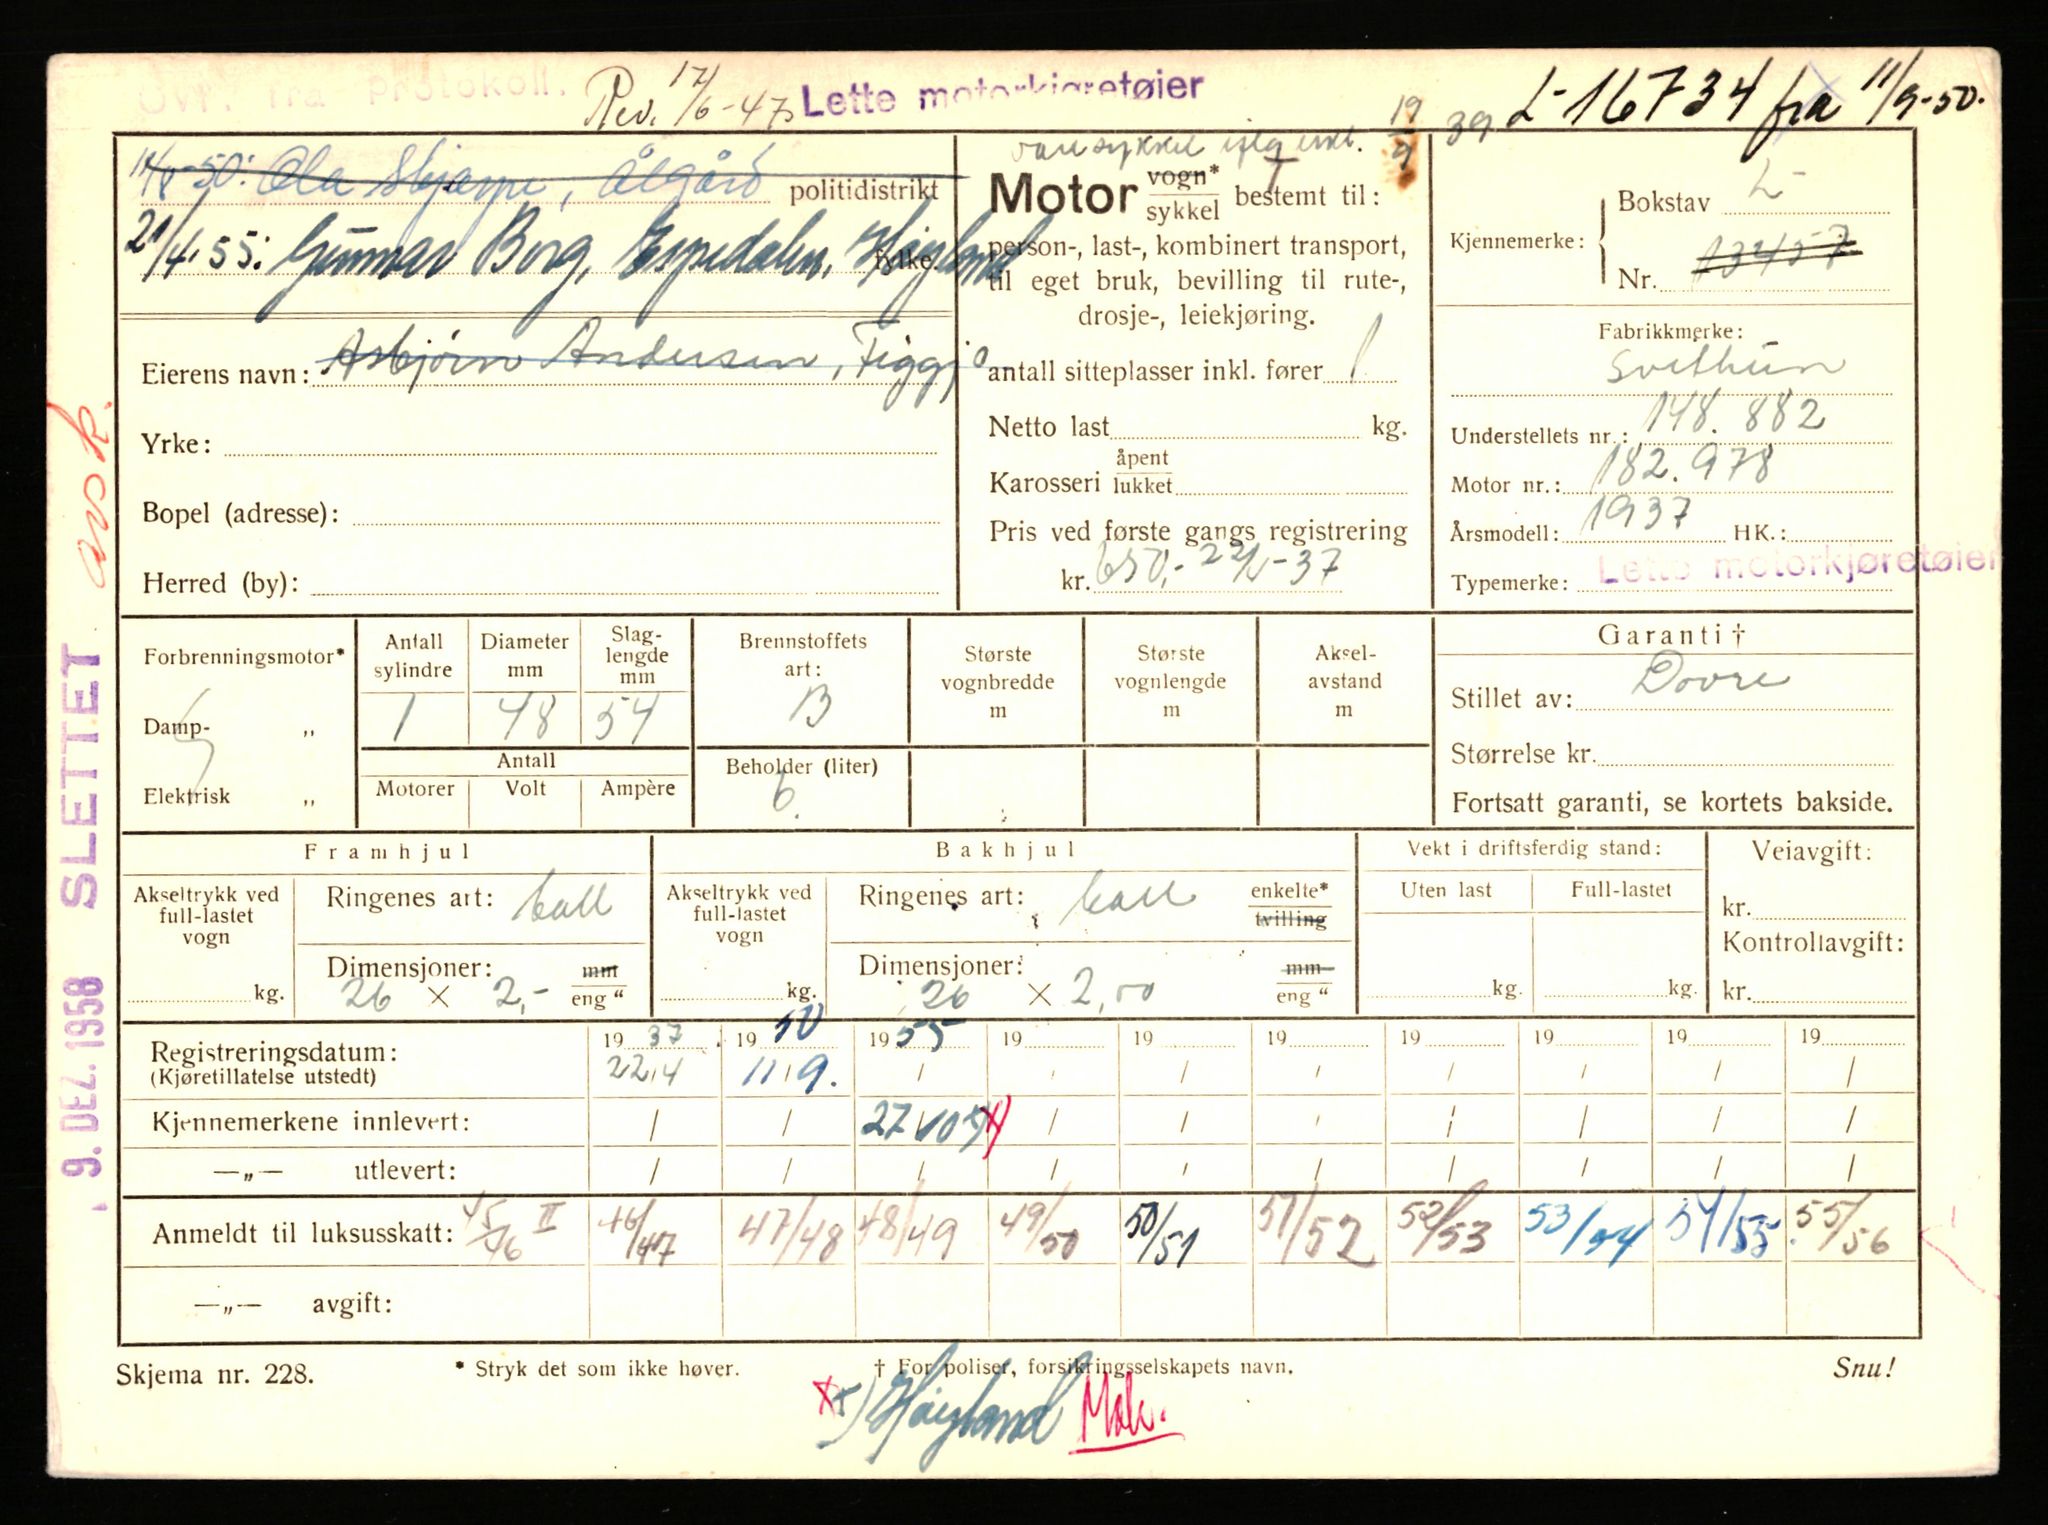 Ovf. fra Protokoll.
Rev. 17/6-47
Lette motorkjøretøier
19/9 39
L-16734 fra 11/9-50.
varesykkel iflg
11/8-50: Ola Skjæpe, Ålgård politidistrikt
21/4.55: Gunnar Borg, Espedalen, Høyland
fylke.
Eierens navn: Asbjørn Andersen, Figgjo
Yrke:
Bopel (adresse):
Herred (by):
Motor vogn*/sykkel bestemt til:
person-, last-, kombinert transport,
til eget bruk, bevilling til rute-,
drosje-, leiekjøring.
antall sitteplasser inkl. fører 1
Netto last kg.
Karosseri åpent/lukket
Pris ved første gangs registrering
kr. 650,- 22/4-37
Kjennemerke: Bokstav L-
Nr. 13457
Fabrikkmerke:
Svithun
Understellets nr.: 148.882
Motor nr.: 182.978
Årsmodell: 1937 HK.:
Typemerke: Lette motorkjøretøier
Forbrenningsmotor*
Damp- ,,
Elektrisk ,,
Antall sylindre 1
Diameter mm 48
Slag-lengde mm 54
Antall
Motorer Volt Ampère
Brennstoffets art: B
Beholder (liter) 6.
Største vognbredde m
Største vognlengde m
Aksel-avstand m
Garanti †
Stillet av: Dovre
Størrelse kr.
Fortsatt garanti, se kortets bakside.
Framhjul
Akseltrykk ved full-lastet vogn kg.
Ringenes art: ball
Dimensjoner: mm
26 × 2,- eng "
Bakhjul
Akseltrykk ved full-lastet vogn kg.
Ringenes art: ball enkelte* tvilling
Dimensjoner: mm
26 × 2,00 eng "
Vekt i driftsferdig stand:
Uten last Full-lastet
kg. kg.
Veiavgift:
kr.
Kontrollavgift:
kr.
19 37 19 50 19 55 19 19 19 19 19 19 19
Registreringsdatum: 22/4 11/9. / / / / / / / /
(Kjøretillatelse utstedt)
Kjennemerkene innlevert: / / 27/10 x) / / / / / / /
—„— utlevert: / / / / / / / / / /
Anmeldt til luksusskatt: 45/46 II 46/47 47/48 48/49 49/50 50/51 51/52 52/53 53/54 54/55 55/56
—„— avgift:
Skjema nr. 228. * Stryk det som ikke høver. † For poliser, forsikringsselskapets navn. Snu!
x) Høyland Mok.
9. DEZ. 1958 SLETTET avsk.